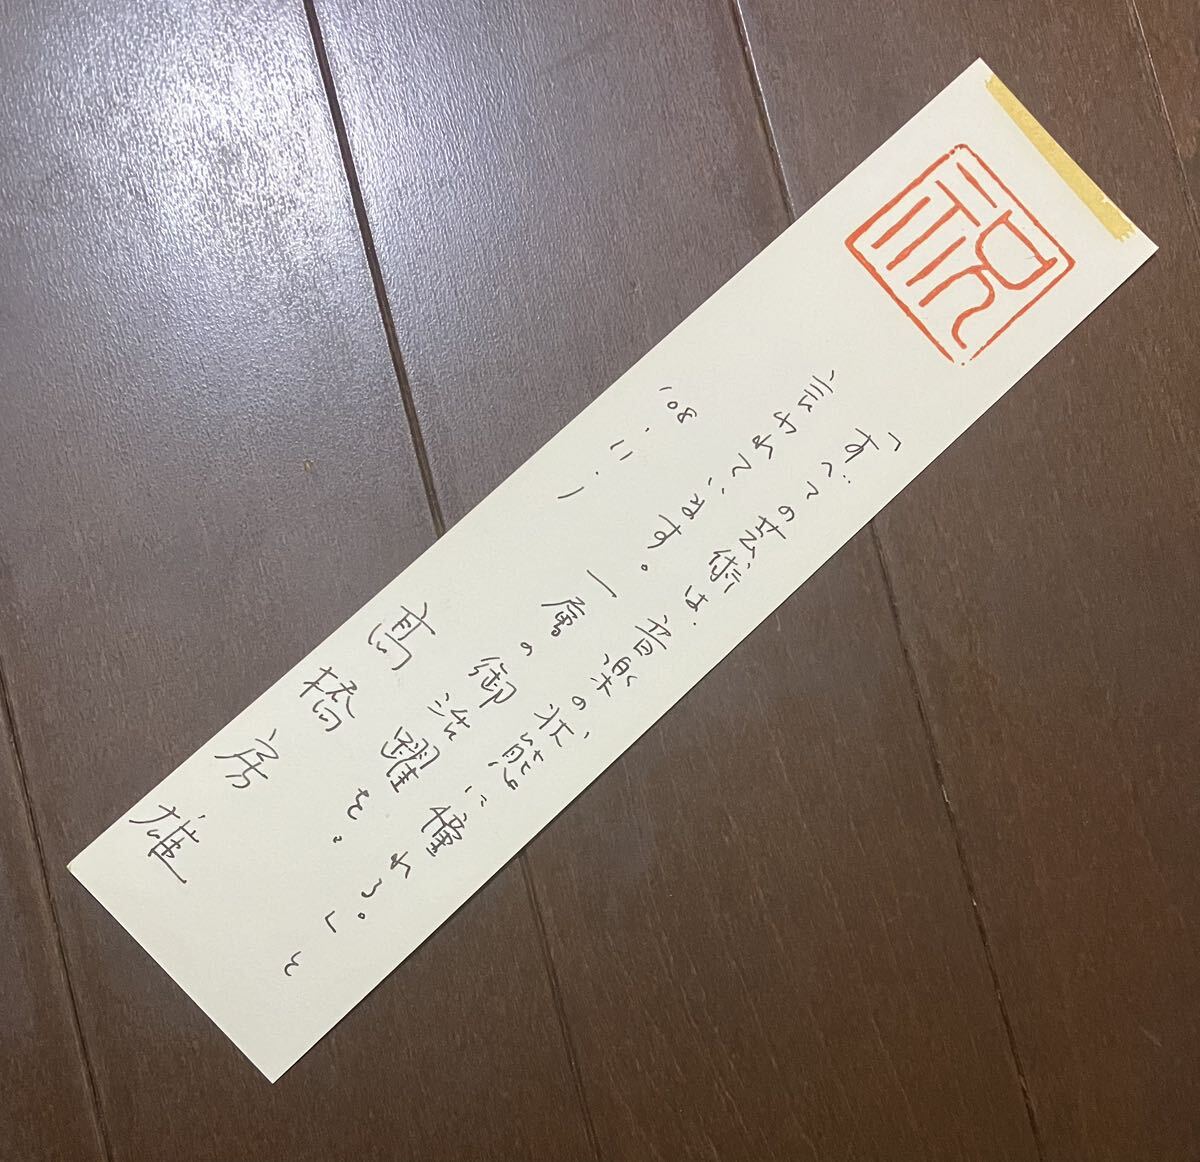 祝
「すべての芸術は、音楽の状態に憧れる。」と
言われています。一層の御活躍を。
'08.11.1
高橋房雄